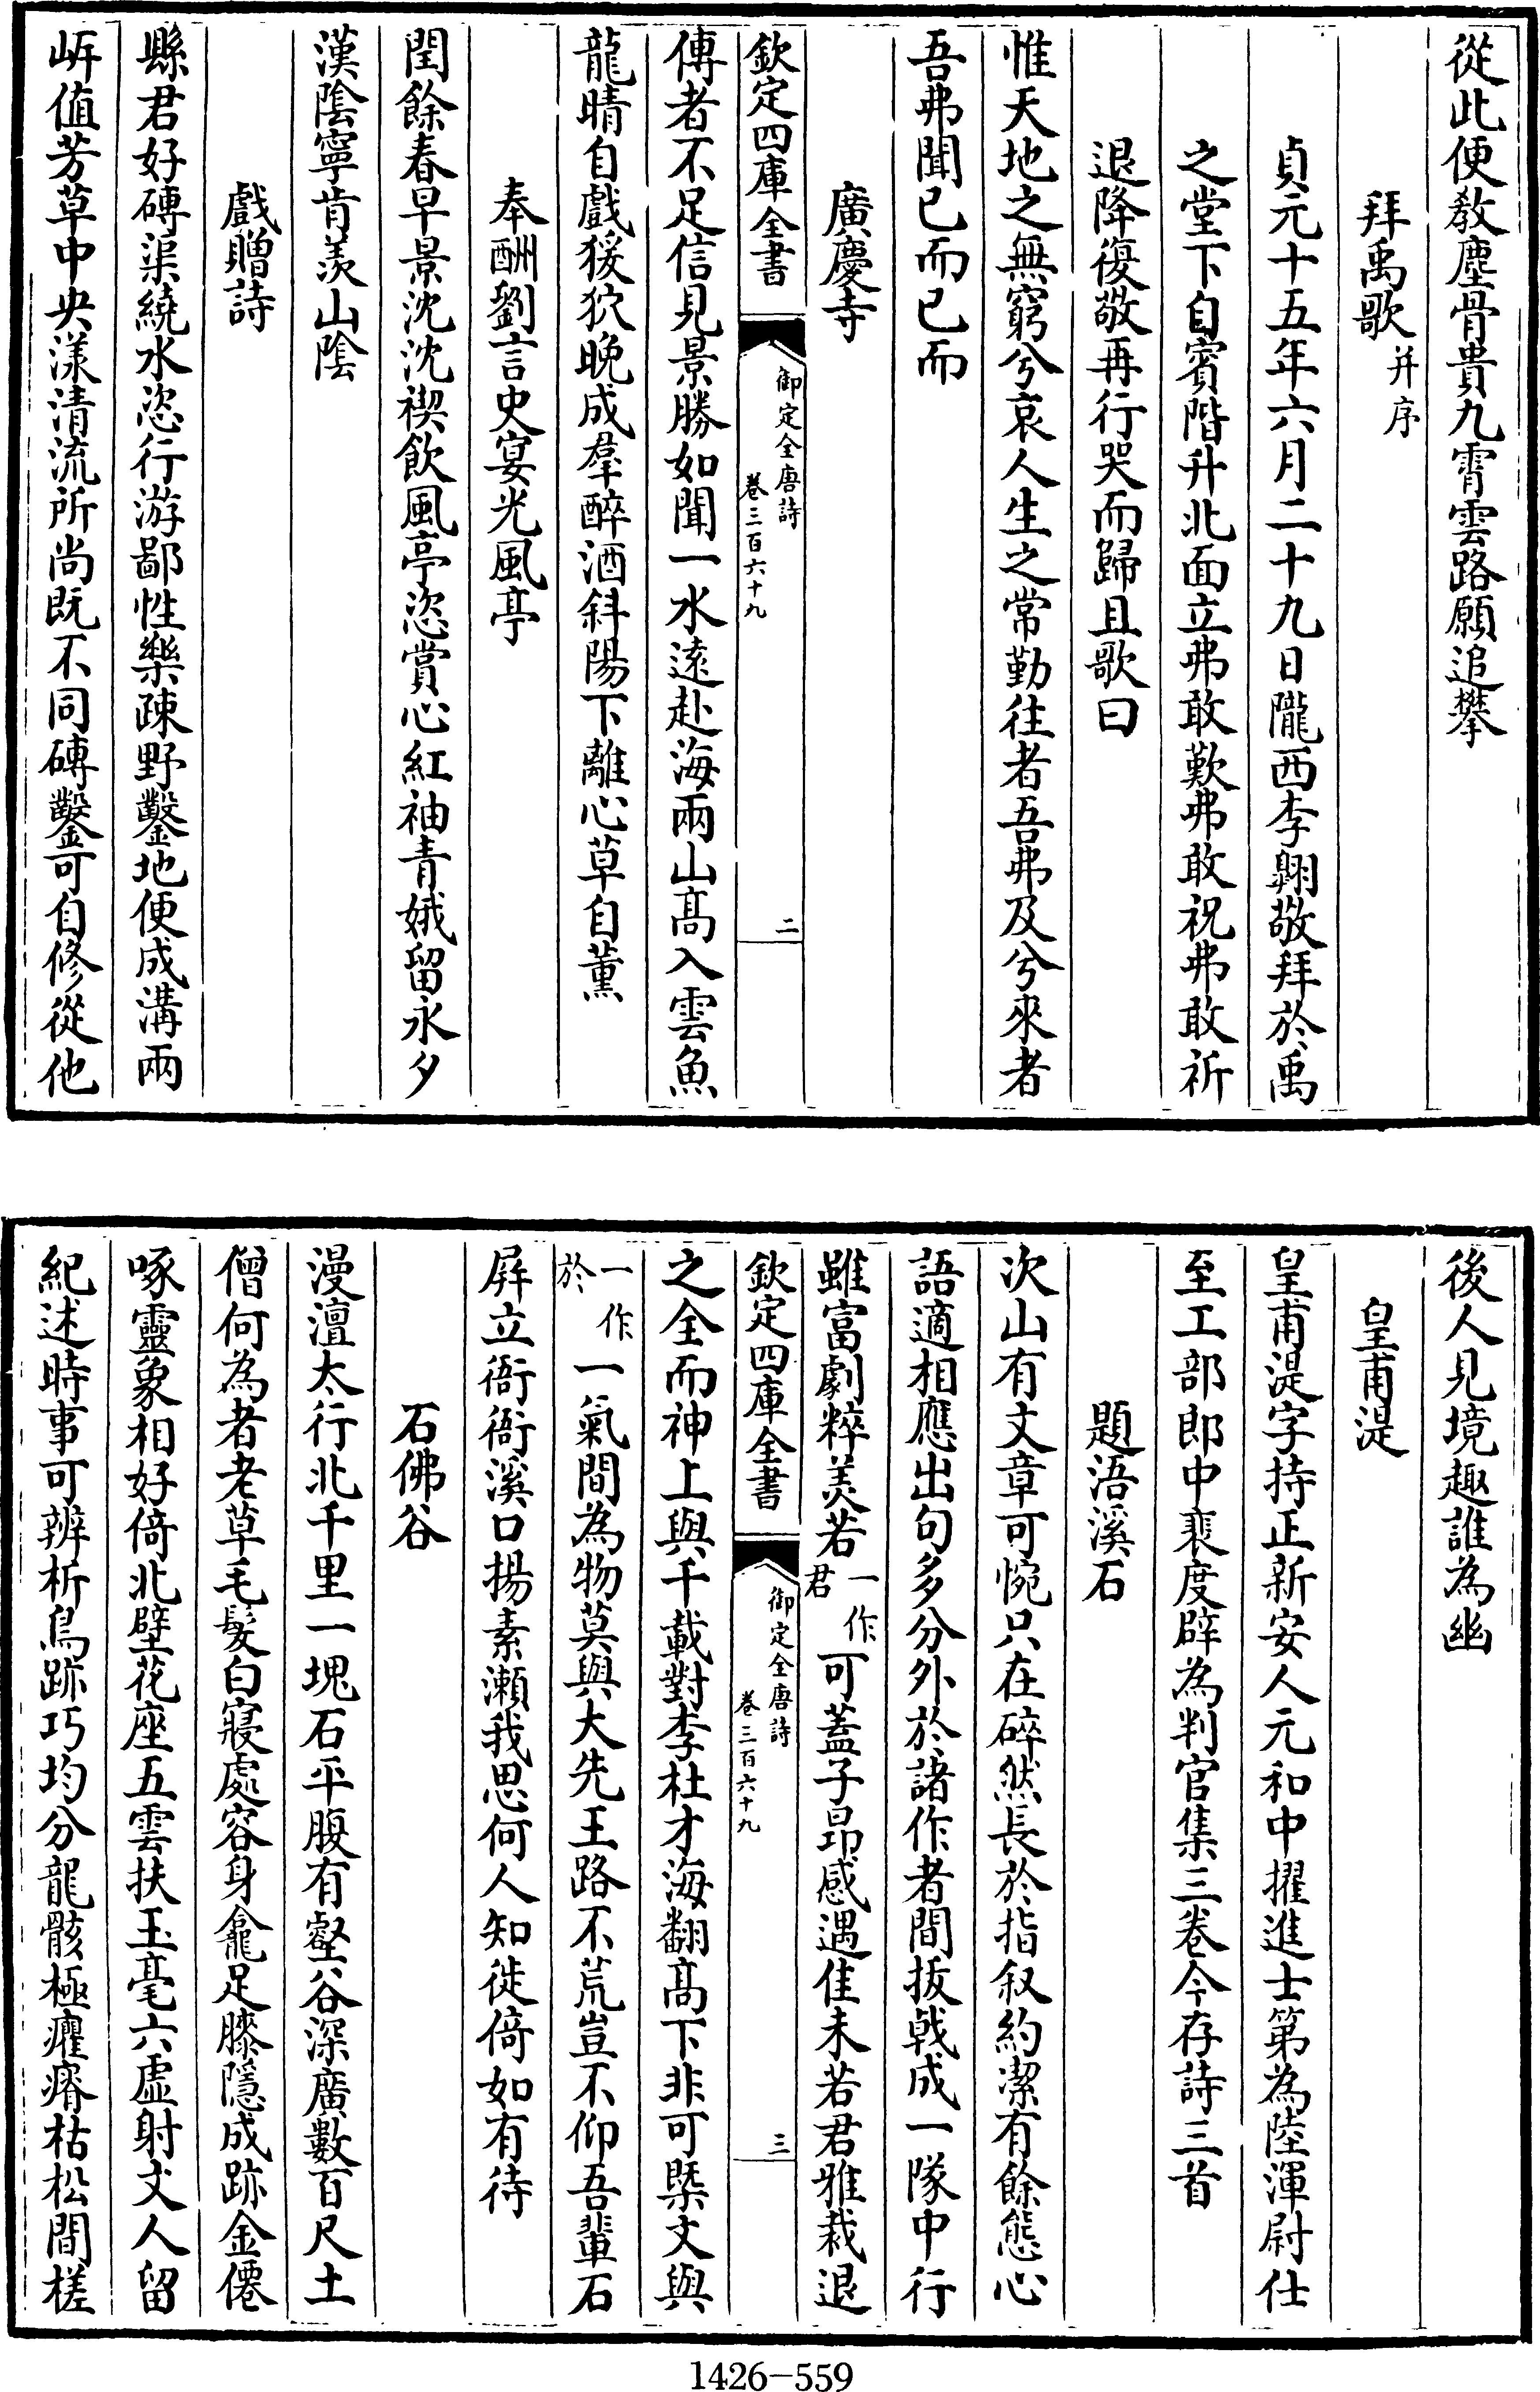 從此便教塵骨貴九霄雲路願追攀
拜禹歌并序
貞元十五年六月二十九日隴西李翺敬拜於禹
之堂下自賓階升北面立弗敢歎弗敢祝弗敢祈
退降復敬再行哭而歸且歌曰
惟天地之無窮兮哀人生之常勤往者吾弗及兮來者
吾弗聞已而已而
廣慶寺
欽定四庫全書 御定全唐詩 卷三百六十九 二
傳者不足信見景勝如聞一水遠赴海兩山髙入雲魚
龍晴自戲猨狖晚成羣醉酒斜陽下離心草自薰
奉酬劉言史宴光風亭
閏餘春早景沈沈禊飲風亭恣賞心紅袖青娥留永夕
漢陰寧肯羨山陰
戲贈詩
縣君好磚渠繞水恣行游鄙性樂疎野鑿地便成溝兩
岍值芳草中央漾清流所尚既不同磚鑿可自修從他
後人見境趣誰為幽
皇甫湜
皇甫湜字持正新安人元和中擢進士第為陸渾尉仕
至工部郎中裴度辟為判官集三卷今存詩三首
題浯溪石
次山有文章可惋只在碎然長於指叙約潔有餘態心
語適相應出句多分外於諸作者間拔㦸成一隊中行
雖富劇粹美若一作君可蓋子昂感遇佳未若君雅裁退
欽定四庫全書 御定全唐詩 卷三百六十九 三
之全而神上與千載對李杜才海翻髙下非可槩文與
一作於一氣間為物莫與大先王路不荒豈不仰吾輩石
屏立衙衙溪口揚素瀨我思何人知徙倚如有待
石佛谷
漫澶太行北千里一塊石平腹有壑谷深廣數百尺土
僧何為者老草毛髮白寢處容身龕足膝隱成跡金僊
啄靈象相好倚北壁花座五雲扶玉毫六虛射文人留
紀述時事可辨析鳥跡巧均分龍骸極癯瘠枯松間槎
1426-559